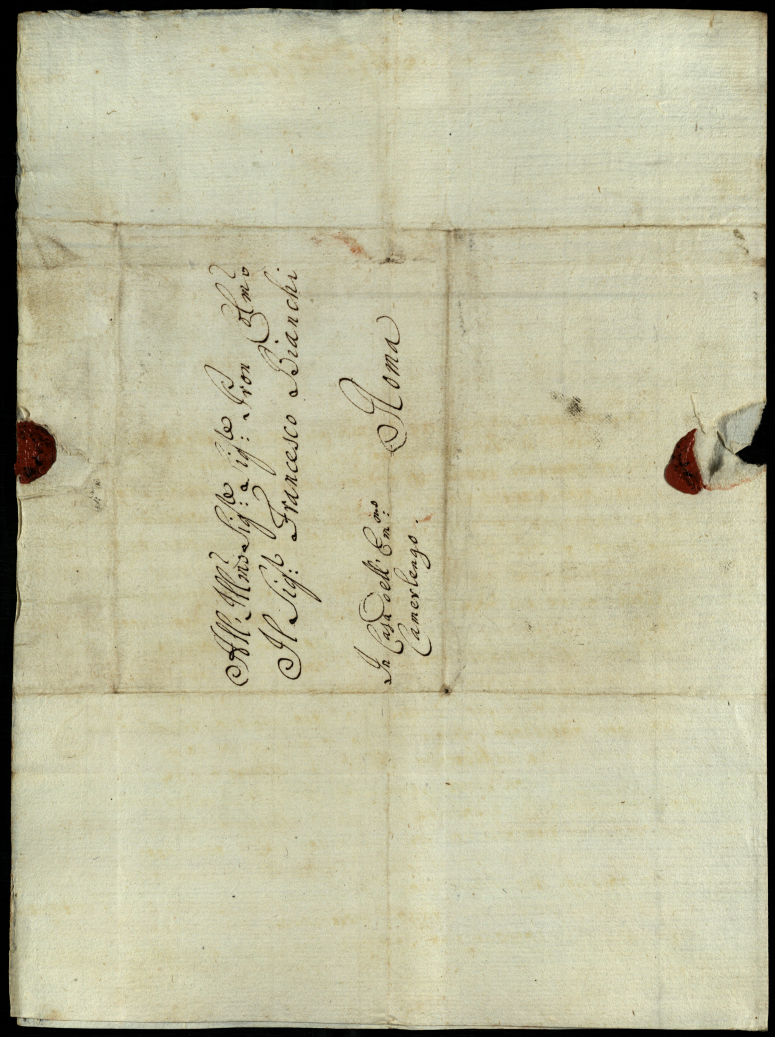 All' Ill.mo Sig.re Sig.re Pron Col.mo
Il Sig.r Francesco Bianchi
In Casa dell' Em.mo
Camerlengo. Roma